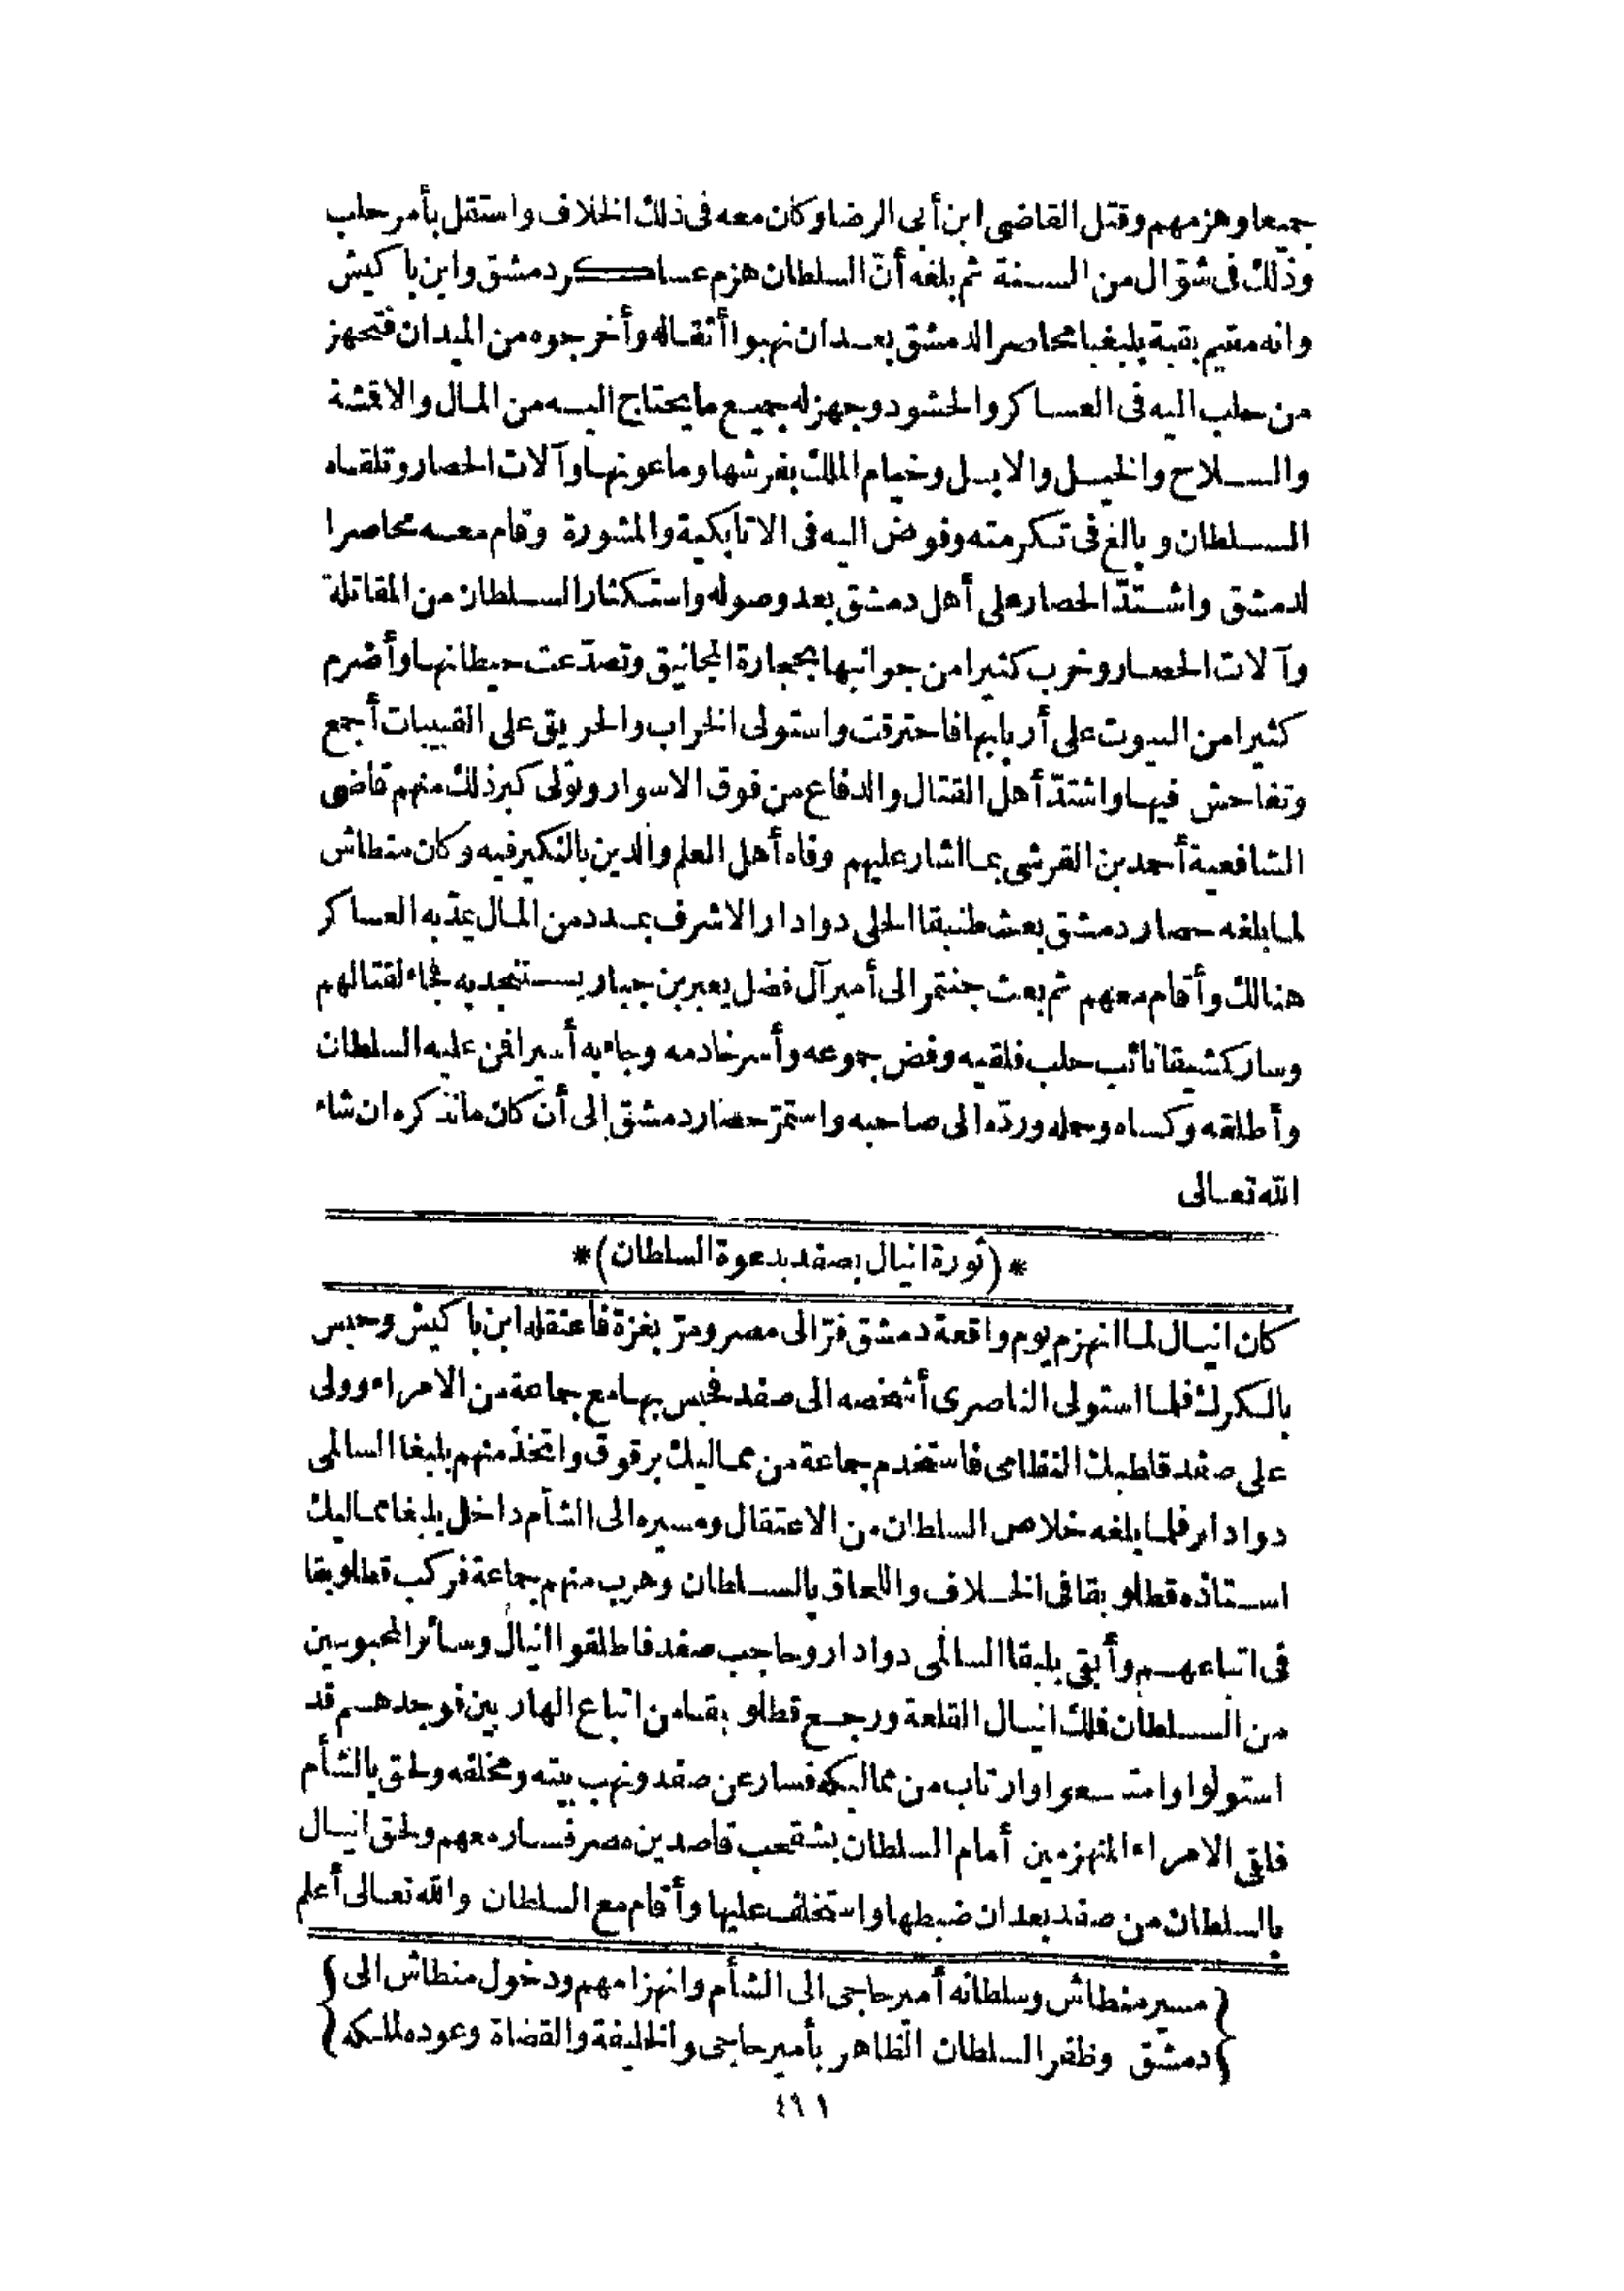 جميعا وهزمهم وقتل القاضى ابن أبى الرضا وكان معه فى ذلك الخلاف واستقل بأمر حلب
وذلك فى شوّال من السنة ثم بلغه أنّ السلطان هزم عساكر دمشق وابن باكيش
وانه مقيم بقبة يلبغا محاصرا لدمشق بعد ان نهبوا أثقاله وأخرجوه من الميدان فتجهز
من حلب اليه فى العساكر والحشود وجهز له جميع ما يحتاج اليه من المال والاقمشة
والسلاح والخيل والابل وخيام الملك بفرشها وماعونها وآلات الحصار وتلقاه
السلطان وبالغ فى تكرمته وفوض اليه فى الاتابكية والمشورة وقام معه محاصرا
لدمشق واشتدّ الحصار على أهل دمشق بعد وصوله واستكثار السلطان من المقاتلة
وآلات الحصار وخرب كثيرا من جوانبها بحجارة المجانيق وتصدّعت حيطانها وأضرم
كثيرا من البيوت على أربابها فاحترقت واستولى الخراب والحريق على القبيبات أجمع
وتفاحش فيها واشتدّ أهل القتال والدفاع من فوق الاسوار وتولى كبر ذلك منهم قاضى
الشافعية أحمد بن القرشى بما اشار عليهم وفاه أهل العلم والدين بالنكير فيه وكان منطاش
لما بلغه حصار دمشق بعث طنبقا الحلى دوادار الاشرف بمدد من المال يمدّ به العساكر
هنالك وأقام معهم ثم بعث جنتمر الى أمير آل فضل يعبر بن جبار يستنجد به فجاء لقتالهم
وسار كشيقا نائب حلب فلقيه وفض جموعه وأسر خادمه وجاء به أسيرا فمن عليه السلطان
وأطلقه وكساه وحمله وردّه الى صاحبه واستمرّ حصار دمشق إلى أن كان ما نذكره ان شاء
الله تعالى
*(ثورة انيال بصفد بدعوة السلطان)*
كان انيال لما انهزم يوم واقعة دمشق فرّ الى مصر ومرّ بغزة فاعتقله ابن باكيش وحبس
بالكرك فلما استولى الناصرى أشخصه الى صفد فحبس بها مع جماعة من الامراء وولى
على صفد قاطبك النظامى فاستخدم جماعة من مماليك برقوق واتخذ منهم يلبغا السالمى
دوادار فلما بلغه خلاص السلطان من الاعتقال ومسيره الى الشأم داخل يلبغا مماليك
استاذه قطلوبقا فى الخلاف واللحاق بالسلطان وهرب منهم جماعة فركب قطلوبقا
فى اتباعهم وأبقى يلبقا السالمى دوادار وحاجب صفد فاطلقوا انيال وسائر المحبوسين
من السلطان فملك انيال القلعة ورجع قطلوبقا من اتباع الهاربين فوجدهم قد
استولوا وامتنعوا وارتاب من مماليكه فسار عن صفد ونهب بيته ومخلفه ولحق بالشأم
فلقى الامراء المنهزمين أمام السلطان بشقحب قاصدين مصر فسار معهم ولحق انيال
بالسلطان من صفد بعد ان ضبطها واستخلف عليها وأقام مع السلطان والله تعالى أعلم
{مسير منطاش وسلطانه أمير حاجى الى الشأم وانهزامهم ودخول منطاش الى}
{دمشق وظفر السلطان الظاهر بأمير حاجى والخليفة والقضاة وعوده لملكه}
٤٩١